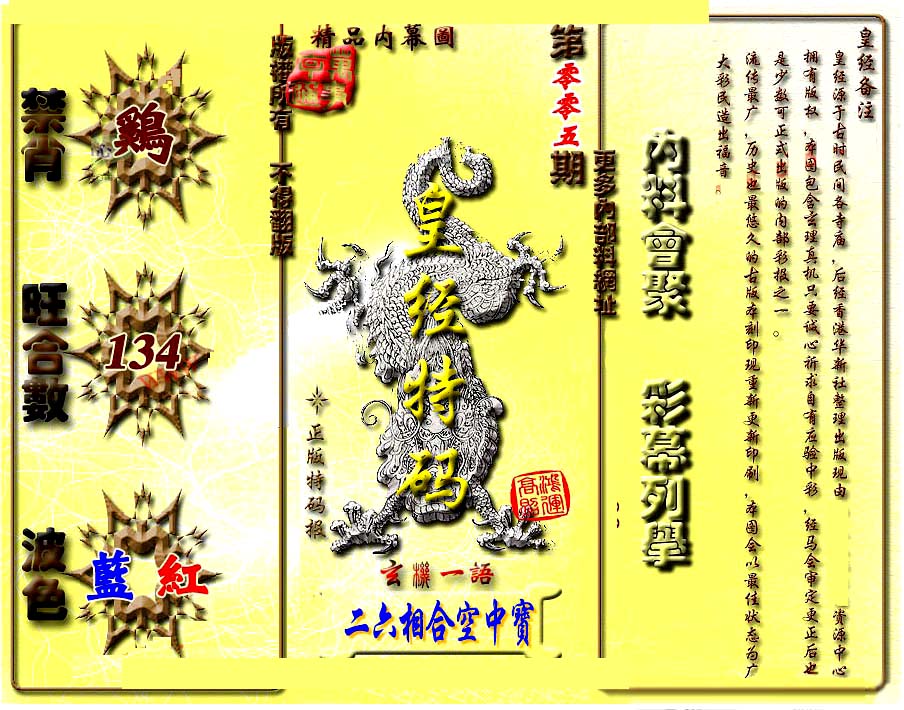 皇经备注
皇经源于古时民间各寺庙,后经香港华新社整理出版现由
资源中心
拥有版权,本图包含玄理真机只要诚心祈求自有应验中彩,经马会审定更正后也
是少数可正式出版的内部彩报之一。
流传最广,历史也最悠久的古版本刻印现重新更新印刷,本图会以最佳状态为广
大彩民造出福音
內料會聚 彩幕列舉
更多內部料網址
第零零五期
精品內幕圖
皇经特码
鴻運高照
正版特码报
玄機一語
二六相合空中寶
版權所有 不得翻版
禁肖
鷄
旺合數
134
波色
藍 紅